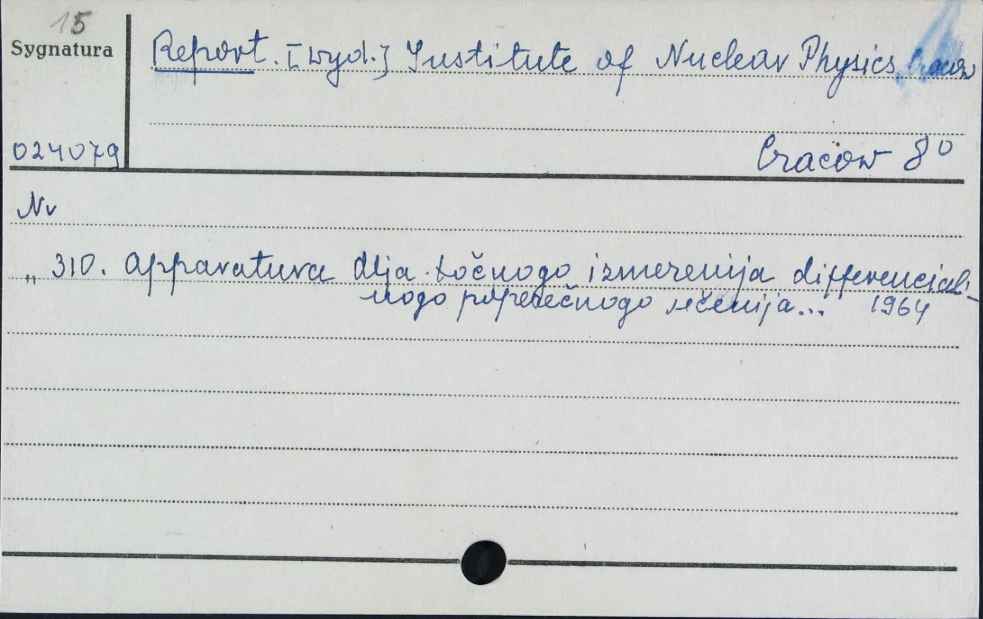 15
Sygnatura
Report. [wyd.] Institute of Nuclear Physics, Cracow
024079
Cracow 8°
Nr
„ 310. Apparatura dlja točnogo izmerenija differencial'-
nogo poperečnogo sečenija... 1964